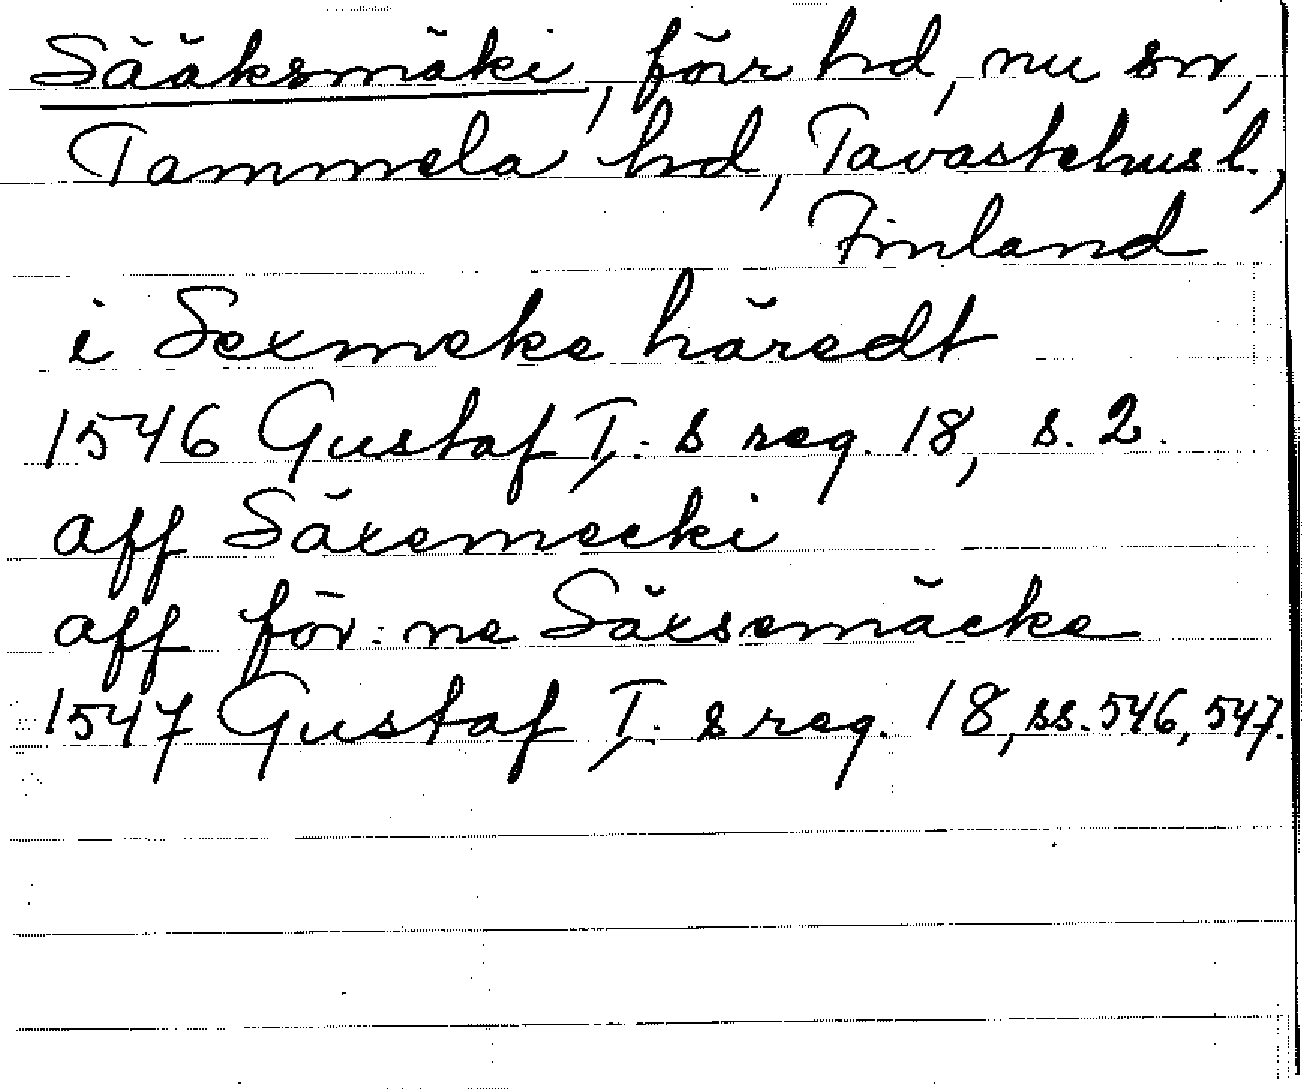 Sääksmäki, förr hd, nu sn,
Tammela hd, Tavastehus l.,
Finland
i Sexmeke häredt
1546 Gustaf I:s reg. 18, s. 2.
aff Säxemecki
aff för:ne Säxsemäcke
1547 Gustaf I:s reg. 18, ss. 546, 547.